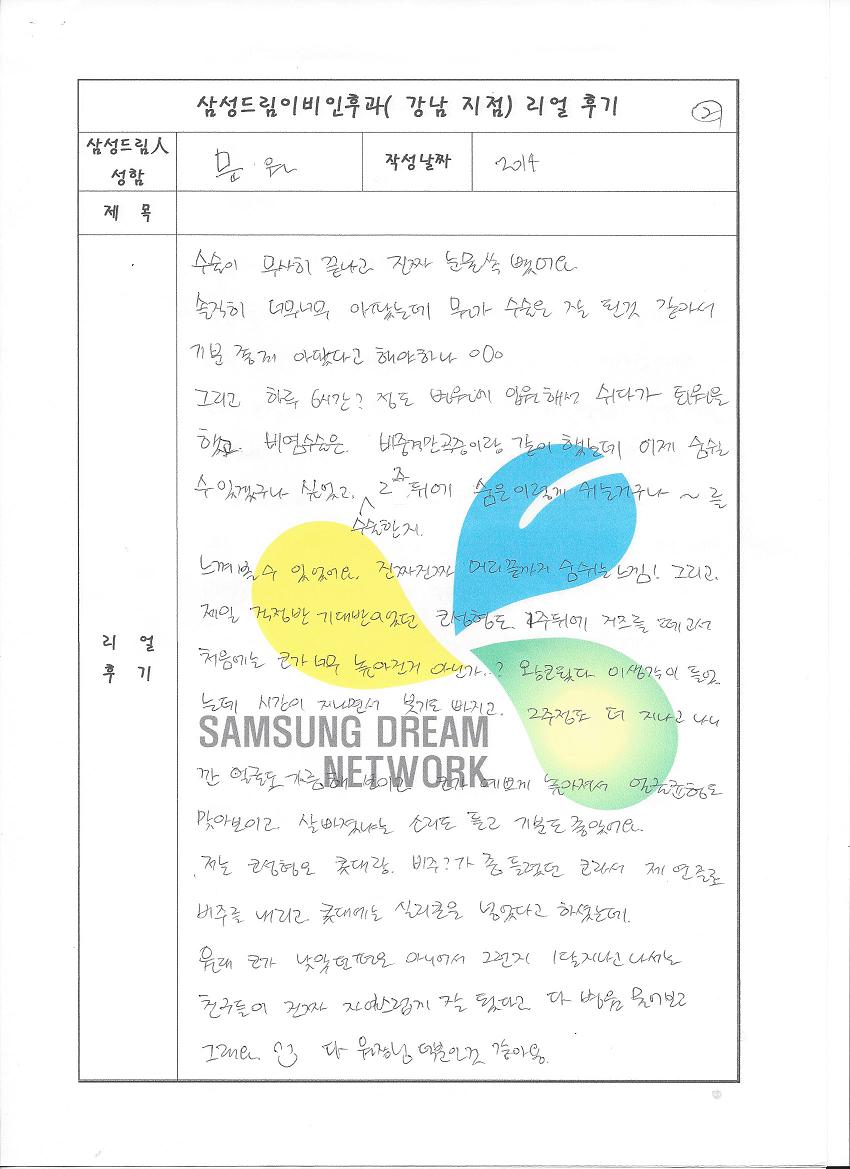 삼성드림이비인후과( 강남 지점) 리얼 후기
②
삼성드림人
성함
문 원
작성날짜
2014
제 목
수술이 무사히 끝나고 진짜 눈물쏙 뺐어요
솔직히 너무너무 아팠는데 뭔가 수술은 잘 된것 같아서
기분 좋게 아팠다고 해야하나 000
그리고 하루 6시간? 정도 병원에 입원해서 쉬다가 퇴원을
했고. 비염수술은 비중격만곡증이랑 같이 했는데 이제 숨쉴
수 있겠구나 싶었고, 2주 뒤에 숨은 이렇게 쉬는거구나 ~ 를
수술한지.
느껴볼 수 있었어요. 진짜진짜 머리끝까지 숨쉬는 느낌! 그리고.
제일 걱정반 기대반이었던 코성형도 1주뒤에 거즈를 떼고서
처음에는 코가 너무 높아진거 아닌가..? 왕코됐다 이생각이 들었
는데 시간이 지나면서 붓기도 빠지고. 2주정도 더 지나고 나니
SAMSUNG DREAM
NETWORK
깐 얼굴도 갸름해 보이고 코가 예쁘게 높아져서 얼굴균형도
맞아보이고 살빠졌냐는 소리도 듣고 기분도 좋았어요.
저는 코성형은 콧대랑. 비주?가 좀 들렸던 코라서 제 연골로
비주를 내리고 콧대에는 실리콘을 넣었다고 하셨는데.
원래 코가 낮았던편은 아니어서 그런지 1달지나고 나서는
친구들이 진짜 자연스럽게 잘 됐다고 다 병원 물어보고
그래요. 다 원장님 덕분인것 같아용.
리 얼
후 기